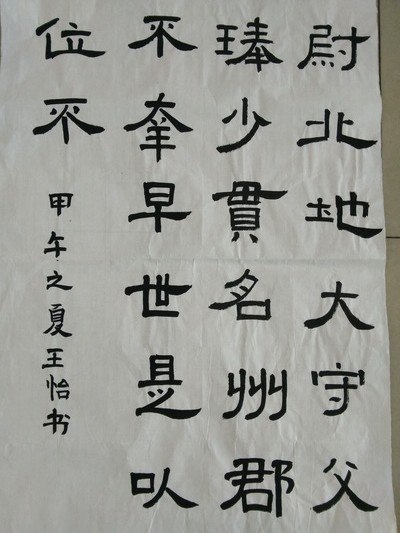 尉北地大守父
琫少貫名州郡
不幸早世是以
位不
甲午之夏王怡书